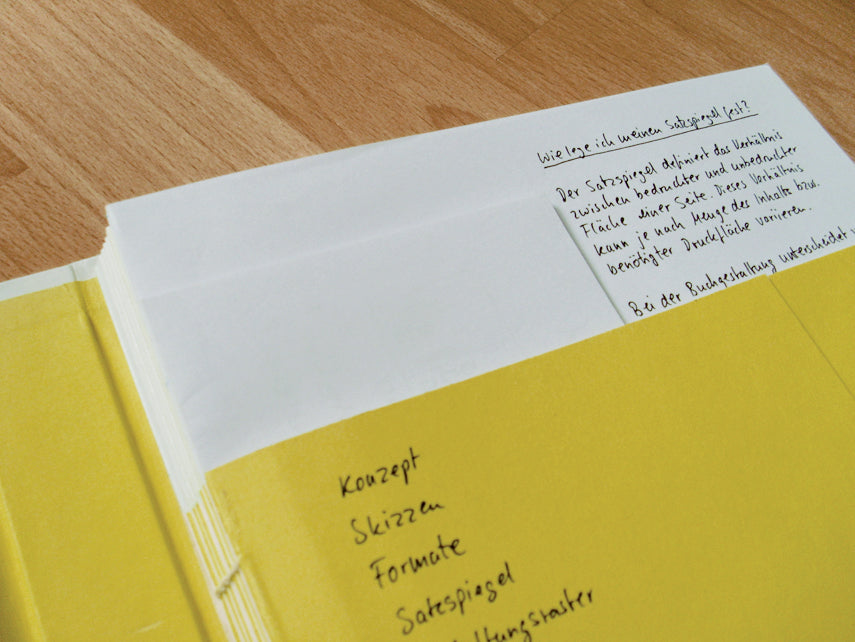 Wie lege ich meinen Satzspiegel fest?
Der Satzspiegel definiert das Verhältnis
zwischen bedruckter und unbedruckter
Fläche einer Seite. Dieses Verhältnis
kann je nach Menge des Inhalts bzw.
benötigter Druckfläche variieren.
Bei der Buchgestaltung unterscheidet
Konzept
Skizzen
Formate
Satzspiegel